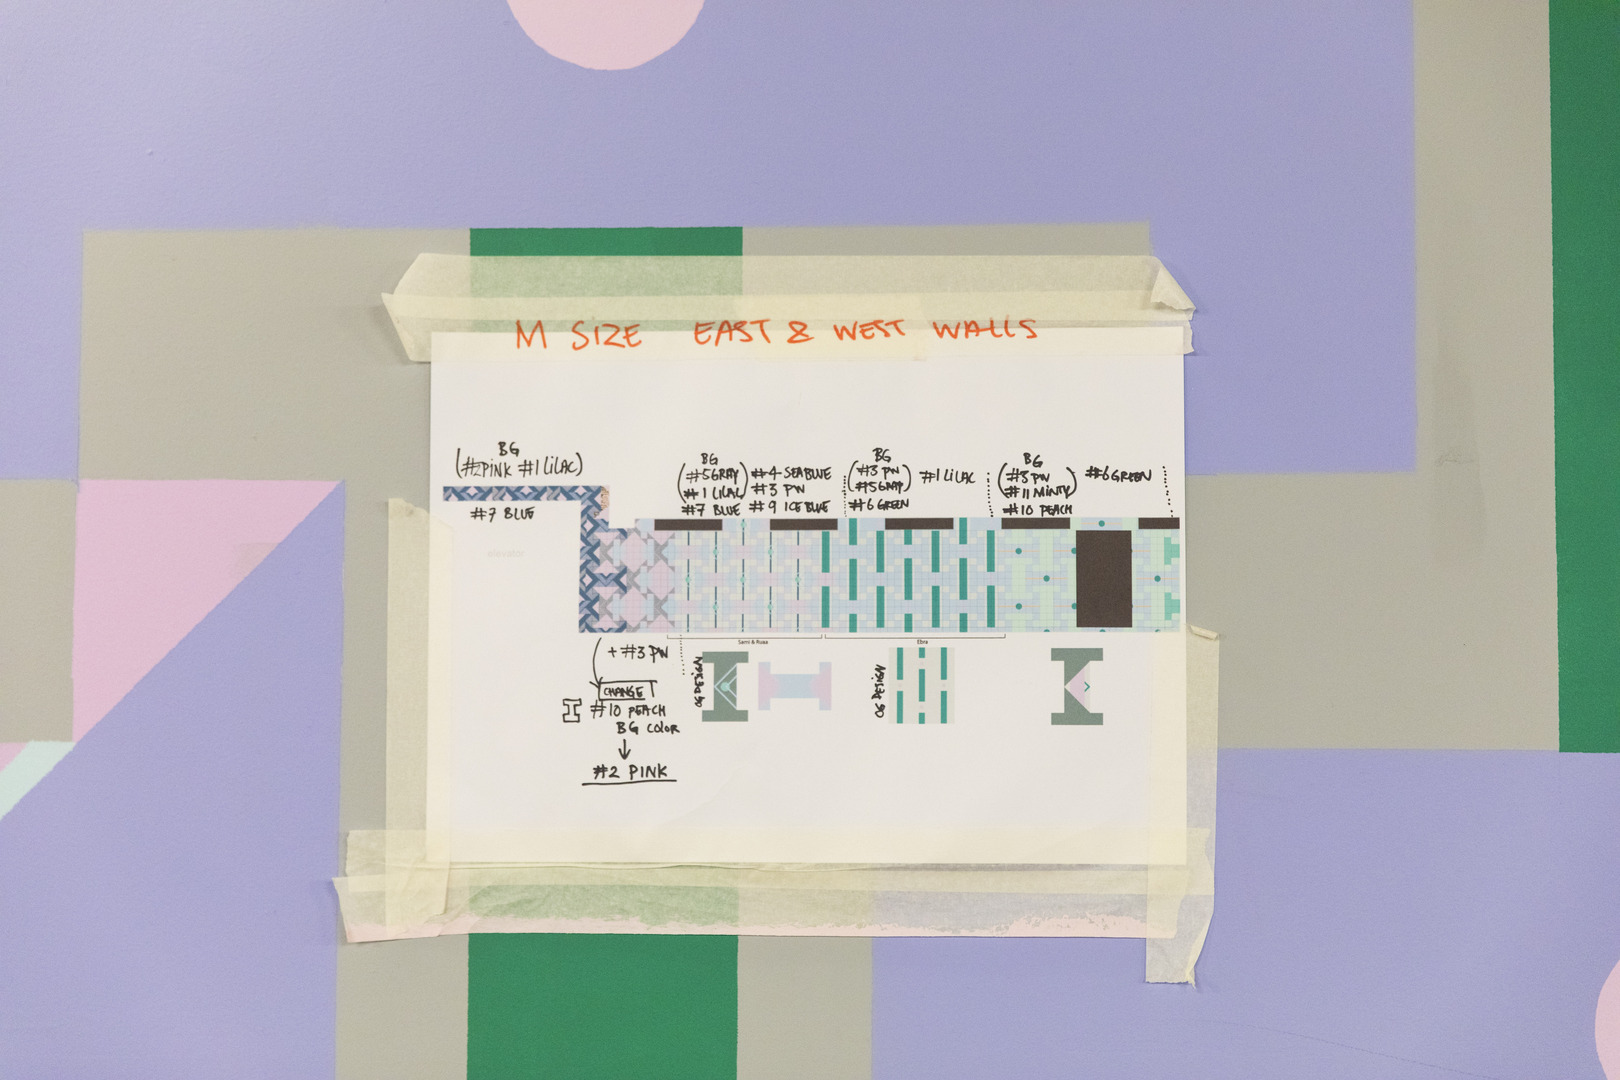 M SIZE EAST & WEST WALLS
BG
(#2PINK #1 LILAC)
#7 BLUE
elevator
BG
(#5 GRAY)
(#1 LILAC)
#7 BLUE
#4 SEABLUE
#3 PW
#9 ICE BLUE
BG
(#3 PW)
(#5 GRAY)
#6 GREEN
#1 LILAC
BG
(#3 PW)
(#11 MINTY)
#10 PEACH
#6 GREEN
Sami & Ruaa
Ebra
+ #3 PW
CHANGE
#10 PEACH
BG COLOR
#2 PINK
OG DESIGN
OG DESIGN